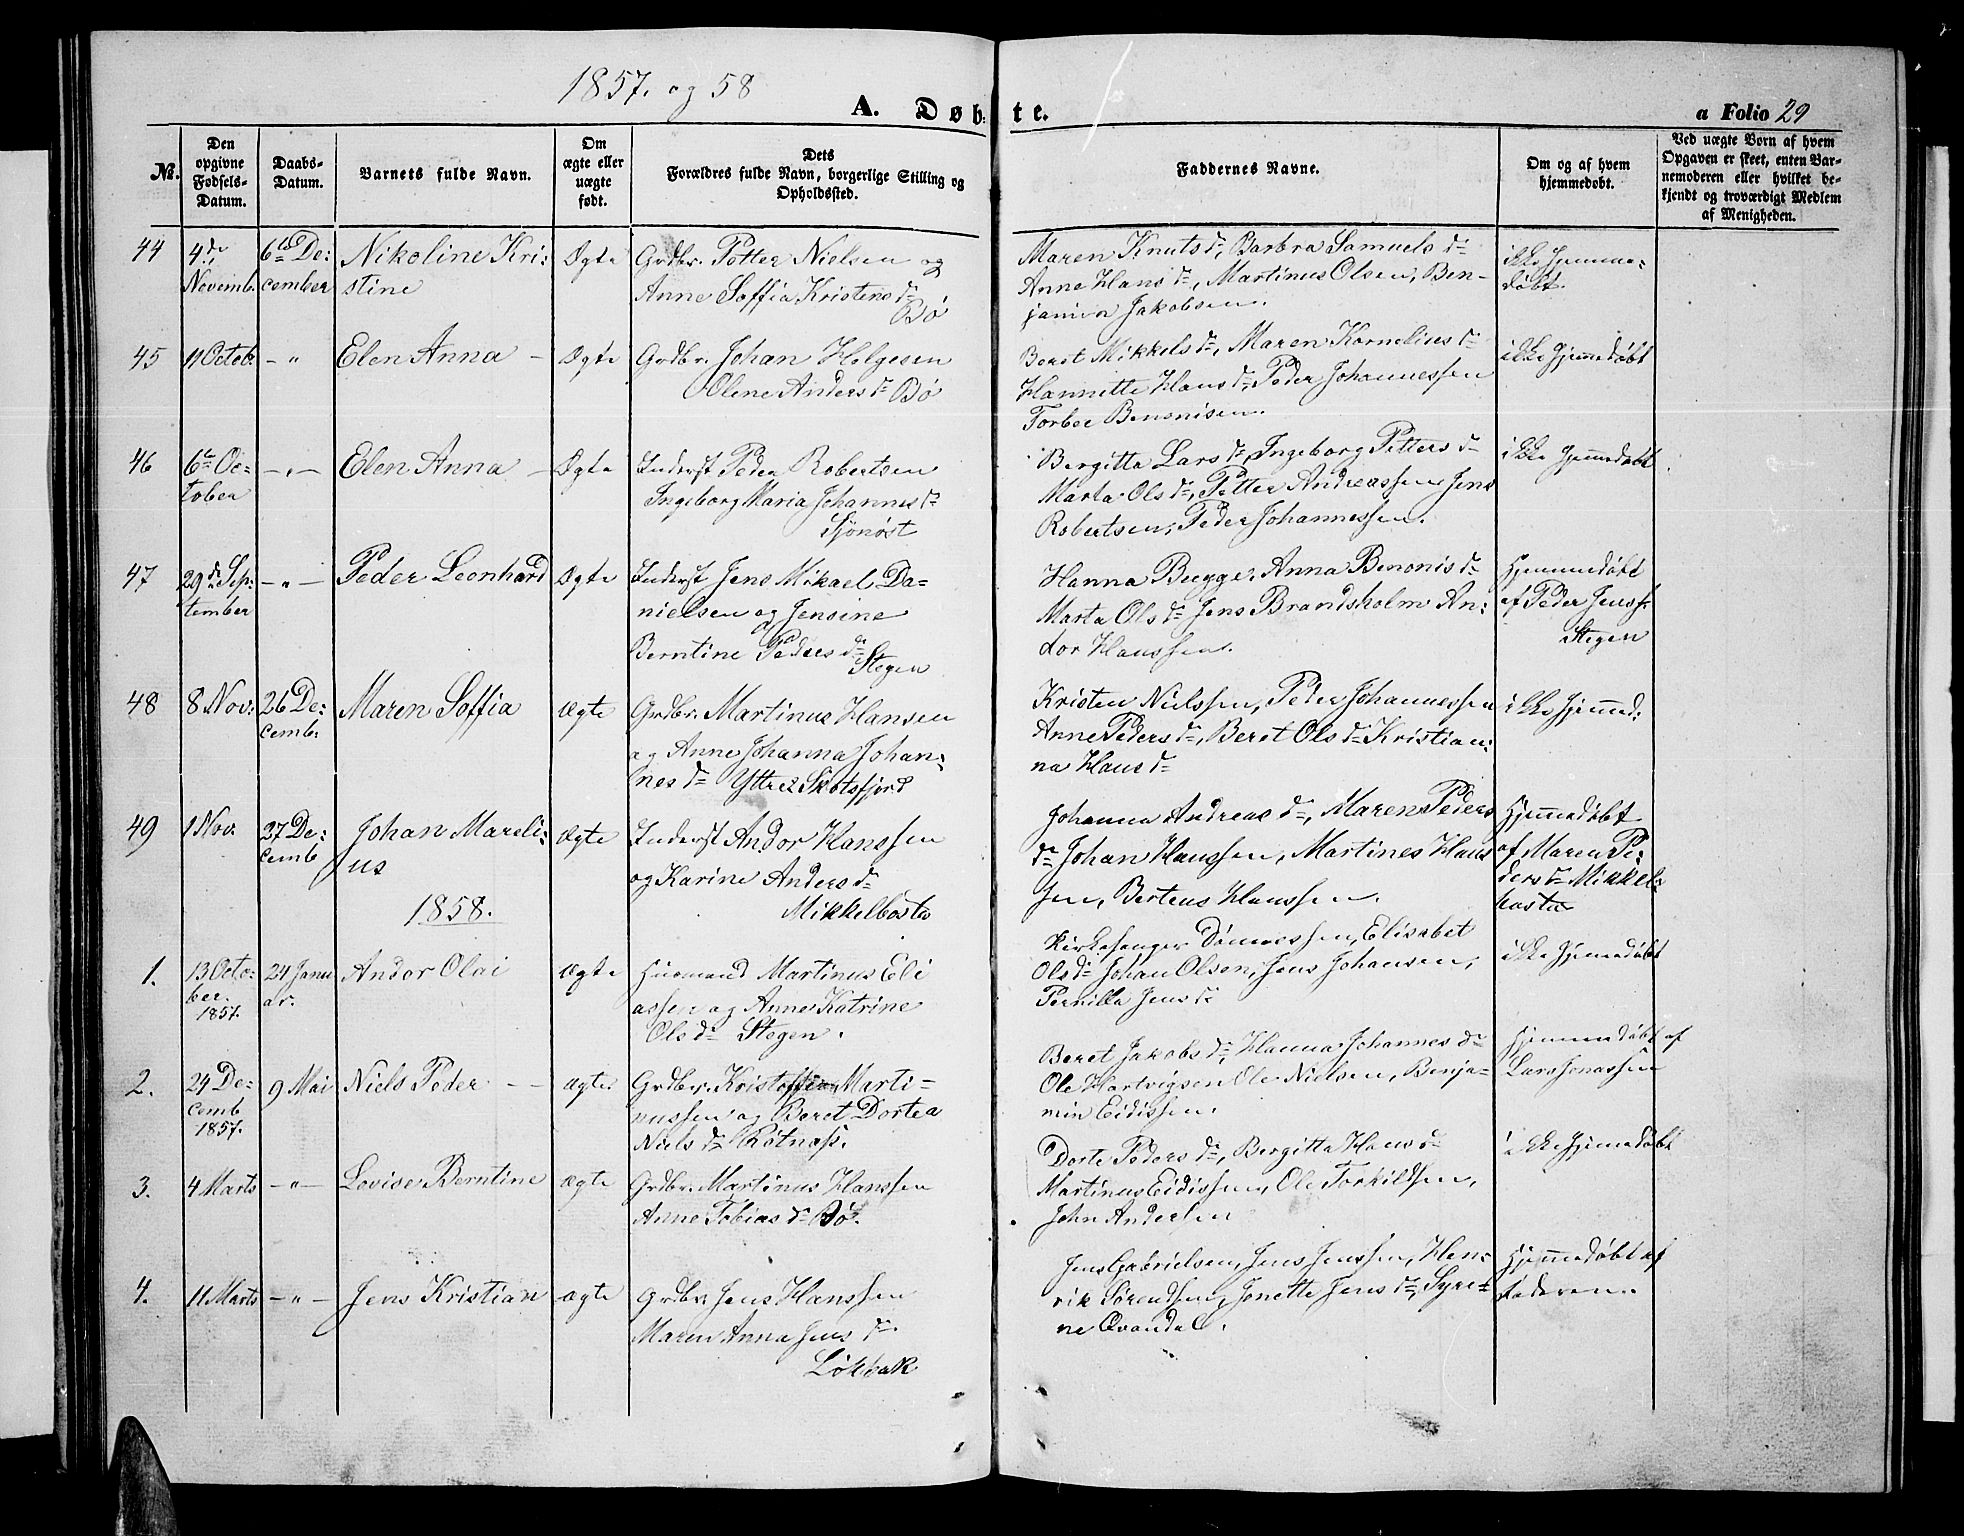 1857. og 58
A. Døb-
te.
a Folio 29
No.
Den opgivne Fødsels-Datum.
Daabs-Datum.
Barnets fulde Navn.
Om ægte eller uægte født.
Dets Forældres fulde Navn, borgerlige Stilling og Opholdssted.
Faddernes Navne.
Om og af hvem hjemmedøbt.
Ved uægte Børn af hvem Opgaven er skeet, enten Barnemoderen eller hvilket bekjendt og troværdigt Medlem af Menigheden.
44
4de Novemb.
6te De-
cember
Nikoline Kri-
stine
Ægte
Grdbr. Petter Nielsen og
Anne Soffia Kristens dr
Bø
Maren Knuts dr, Barbra Samuels dr
Anne Hans dr, Martinus Olsen, Ben-
jamin Jakobsen.
ikke hjemme-
døbt.
45
11 Octob.
- " -
Elen Anna -
Ægte
Grdbr. Johan Helgesen
Olene Anders dr Bø
Beret Mikkels dr, Maren Kornelius dr
Hannette Hans dr, Peder Johannessen
Torber Benonisen.
ikke hjemmedøbt
46
6te Oc-
tober
- " -
Elen Anna -
Ægte
Inderst Peder Robertsen
Ingeborg Maria Johannes dr
Sjønøst
Bergitta Lars dr, Ingeborg Petters dr
Marta Ols dr, Petter Andreassen, Jens
Robertsen, Peder Johannessen.
ikke hjemmedøbt
47
29de Sep-
tember
- " -
Peder Leonhard
Ægte
Inderst Jens Mikael Da-
nielsen og Jensine
Berntine Peders dr
Stegen
Hanna Bugge, Anna Benonis dr
Marta Ols dr Jens Brandsholm An-
dor Hanssen.
Hjemmedøbt
af Peder Jenss.
Stegen
48
8 Nov:
26 De-
cemb.
Maren Soffia
Ægte
Grdbr. Martinus Hansen
og Anne Johanna Johan-
nes dr Yttre Skotsfjord
Kristen Nielssen, Peder Johannessen
Anne Peders dr, Beret Ols dr Kristian-
na Hans dr
ikke hjemmed:
49
1 Nov.
27 De-
cemb
Johan Mareli-
us
Ægte
Inderst Andor Hanssen
og Karine Anders dr
Mikkelbosta
Johanna Andreas dr, Maren Peders
dr Johan Hanssen, Martines Hans
sen, Berteus Hanssen.
Hjemmedøbt
af Maren Pe-
ders dr Mikkel-
bosta
1858.
1.
13 Octo-
ber.
1857.
24 Janu
ar.
Andor Olai
Ægte
Huusmand Martinus Eli
assen og Anne Katrine
Ols dr Stegen.
Kirkesanger Dønnessen, Elisabet
Ols dr Johan Olsen, Jens Johansen,
Pernilla Jens dr
ikke hjemmedøbt
2.
24 De-
cemb
1857.
9 Mai
Niels Peder - -
ægte.
Grdbr. Kristoffer Marti-
nussen og Beret Dortea
Niels dr Røtnæss.
Beret Jakobs dr, Hanna Johannes dr
Ole Hartvigsen Ole Nielsen, Benja-
min Eidissen.
Hjemmedøbt af
Lars Jonassen
3.
4 Marts
- " -
Lovise Berntine
ægte
Grdbr. Martinus Hanssen
Anne Tobias dr Bø.
Dorte Peders dr, Bergitta Hans dr
Martinus Eidissen, Ole Torkildsen,
John Andersen
ikke hjemmedøbt
4.
11 Marts
- " -
Jens Kristian
ægte
Grdbr. Jens Hanssen
Maren Anna Jens dr
Løkbak
Jens Gabrielsen, Jens Jenssen, Hen-
rik Sørendsen, Jonette Jens dr, Syre-
ne Qvandal.
Hjemmedøbt af
faderen.